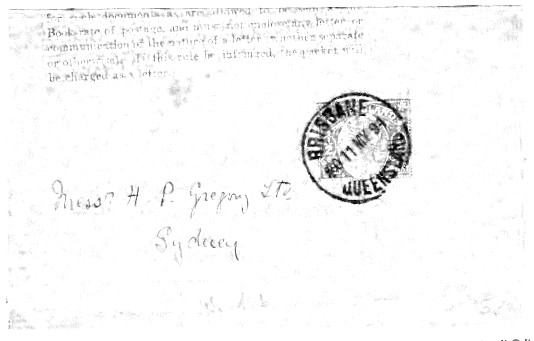 for such documents as are allowed to be sent at the
Book-rate of postage, and must not enclose any letter or
communication of the nature of a letter whether separate
or otherwise. If this rule be infringed, the packet will
be charged as a letter.
BRISBANE
11 MY 94
QUEENSLAND
Messrs H. P. Gregory Ltd
Sydney